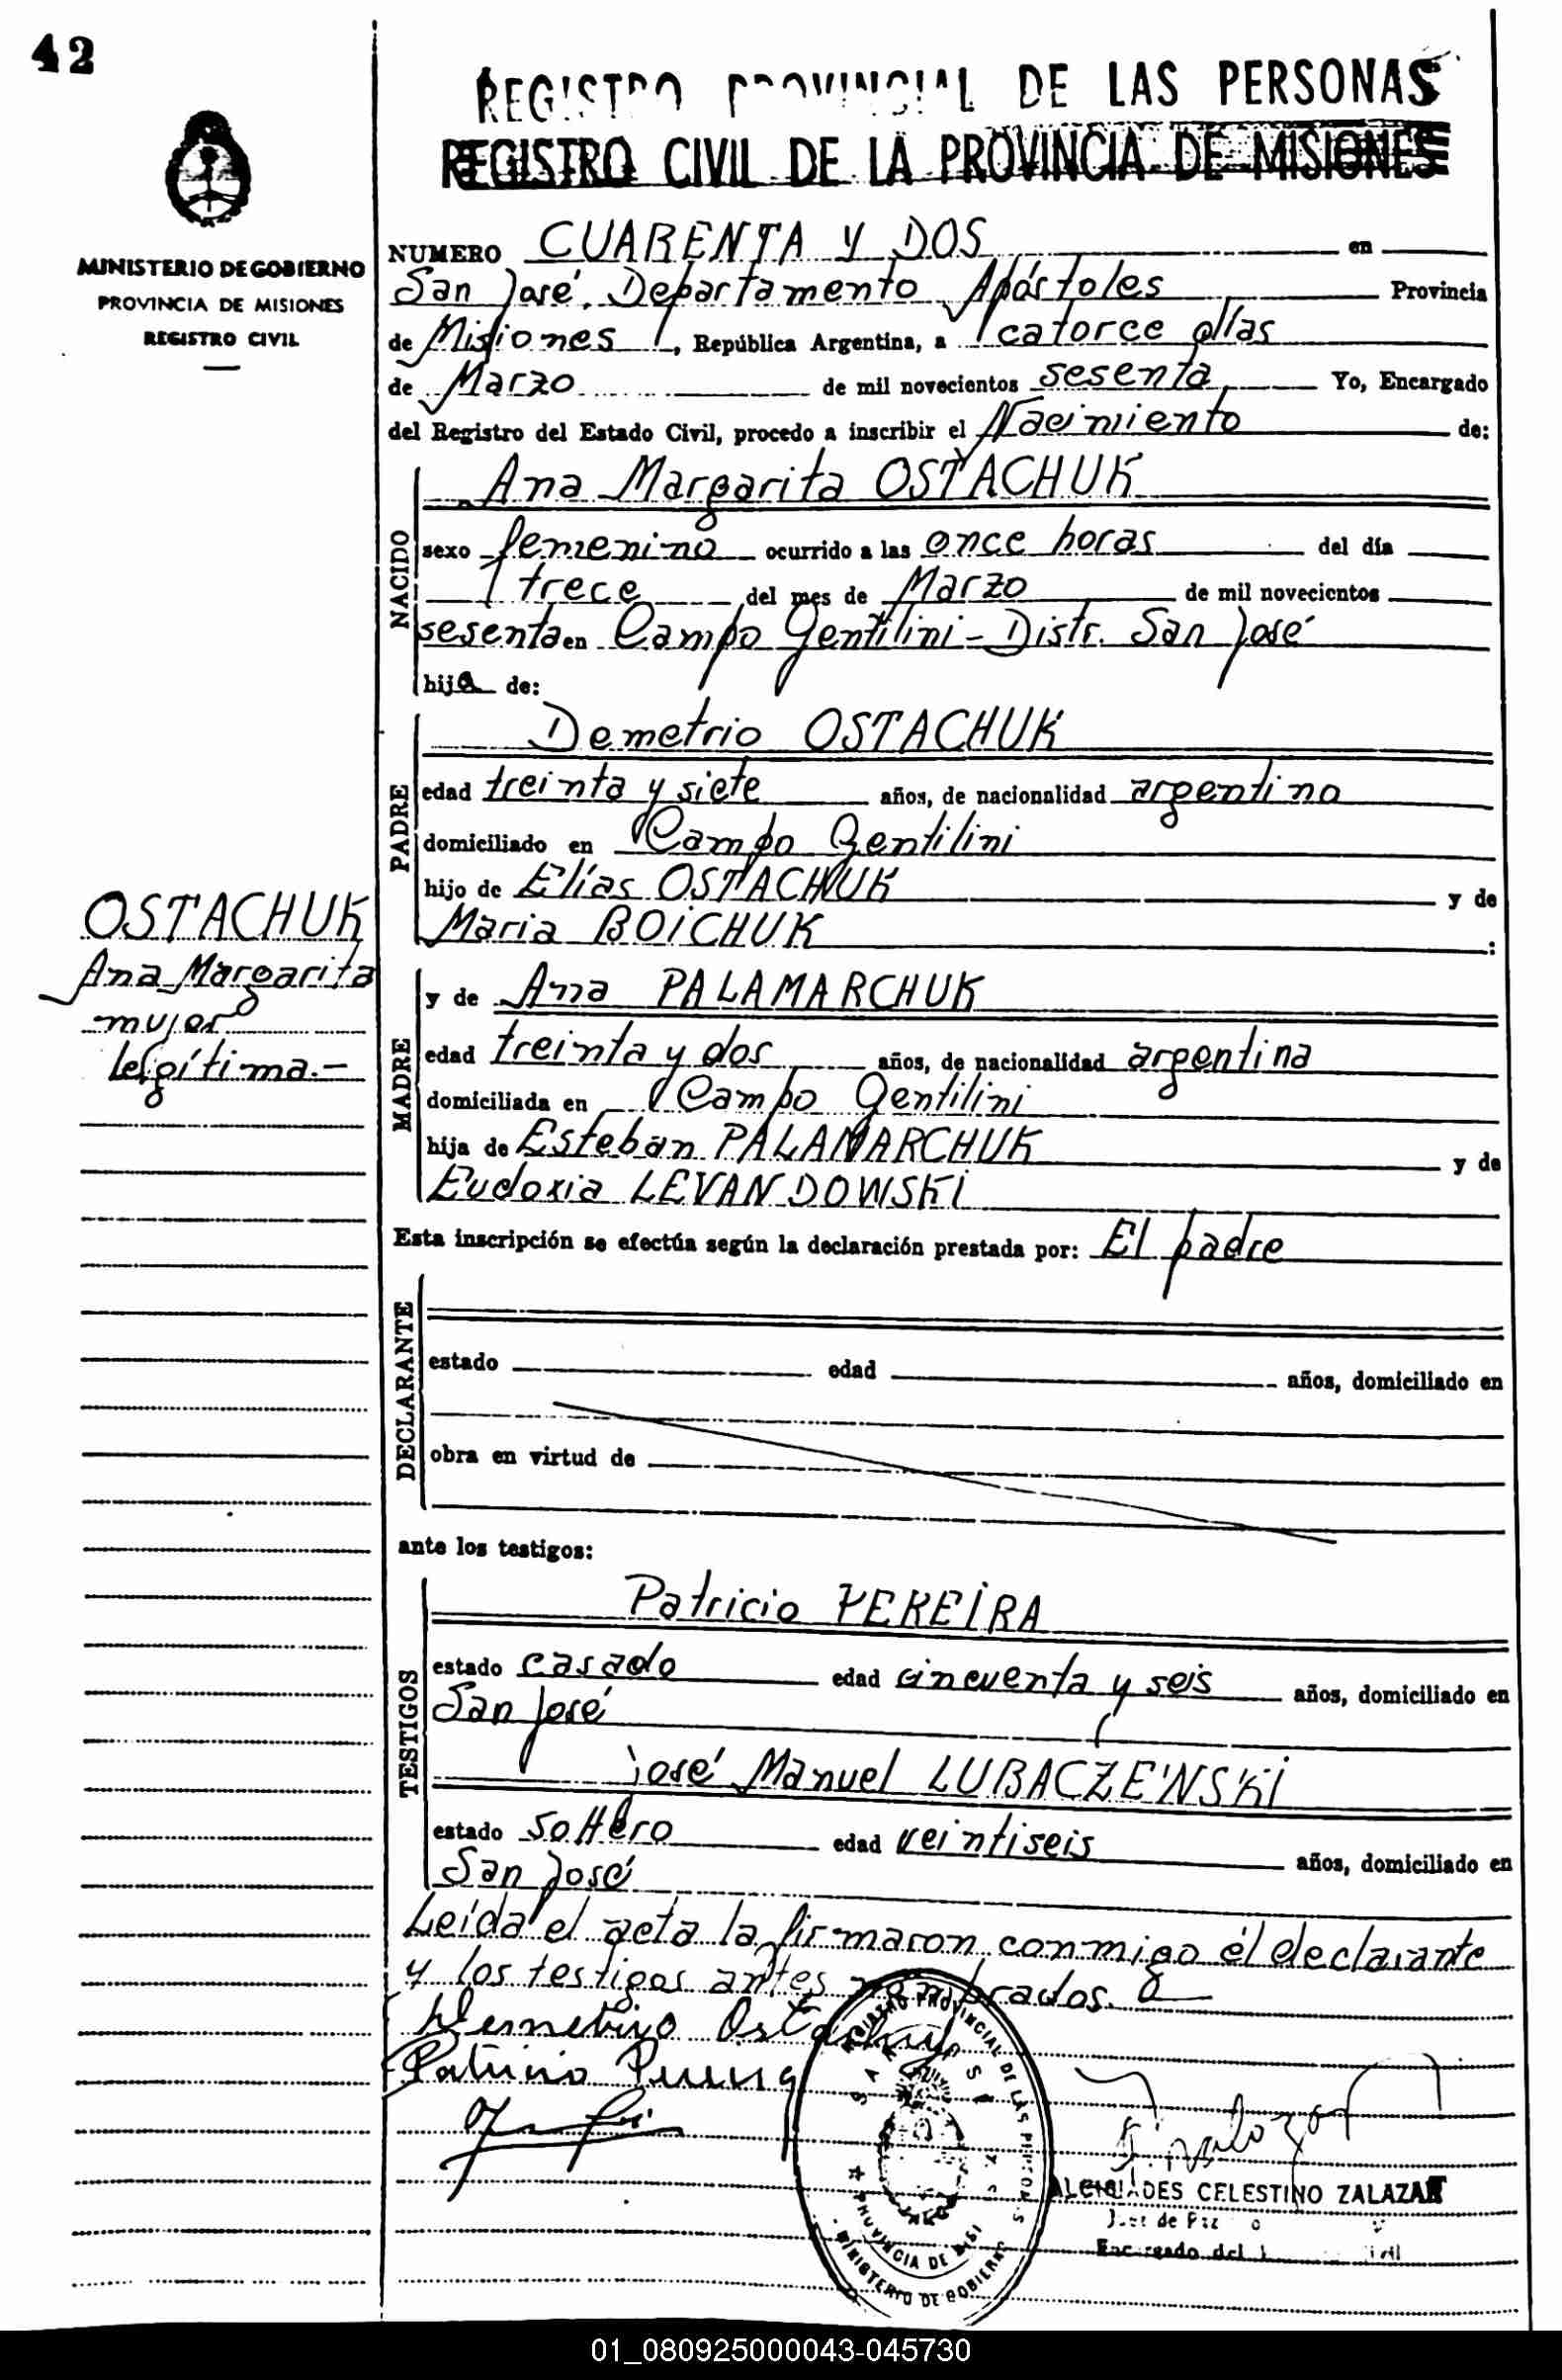 42
MINISTERIO DE GOBIERNO
PROVINCIA DE MISIONES
REGISTRO CIVIL
OSTACHUK
Ana Margarita
mujer
legítima.-
REGISTRO PROVINCIAL DE LAS PERSONAS
REGISTRO CIVIL DE LA PROVINCIA DE MISIONES
NUMERO CUARENTA Y DOS en
San José, Departamento Apóstoles Provincia
de Misiones, República Argentina, a catorce días
de Marzo de mil novecientos sesenta Yo, Encargado
del Registro del Estado Civil, procedo a inscribir el Nacimiento de:
NACIDO
Ana Margarita OSTACHUK
sexo femenino ocurrido a las once horas del día
trece del mes de Marzo de mil novecientos
sesenta en Campo Gentilini - Distr. San José
hija de:
PADRE
Demetrio OSTACHUK
edad treinta y siete años, de nacionalidad argentino
domiciliado en Campo Gentilini
hijo de Elías OSTACHUK y de
Maria BOICHUK :
MADRE
y de Ana PALAMARCHUK
edad treinta y dos años, de nacionalidad argentina
domiciliada en Campo Gentilini
hija de Esteban PALAMARCHUK y de
Eudoxia LEVANDOWSKI
Esta inscripción se efectúa según la declaración prestada por: El padre
DECLARANTE
estado edad años, domiciliado en
obra en virtud de
ante los testigos:
TESTIGOS
Patricio PEREIRA
estado casado edad cincuenta y seis años, domiciliado en
San José
José Manuel LUBACZEWSKI
estado soltero edad veintiseis años, domiciliado en
San José
Leída el acta la firmaron conmigo él declarante
y los testigos antes nombrados.
Demetrio Ostachuk
Patricio Pereira
REGISTRO PROVINCIAL DE LAS PERSONAS
SAN JOSE
PROVINCIA DE MISIONES
MINISTERIO DE GOBIERNO
ALCIBIADES CELESTINO ZALAZAR
Juez de Paz
Encargado del
01_080925000043-045730